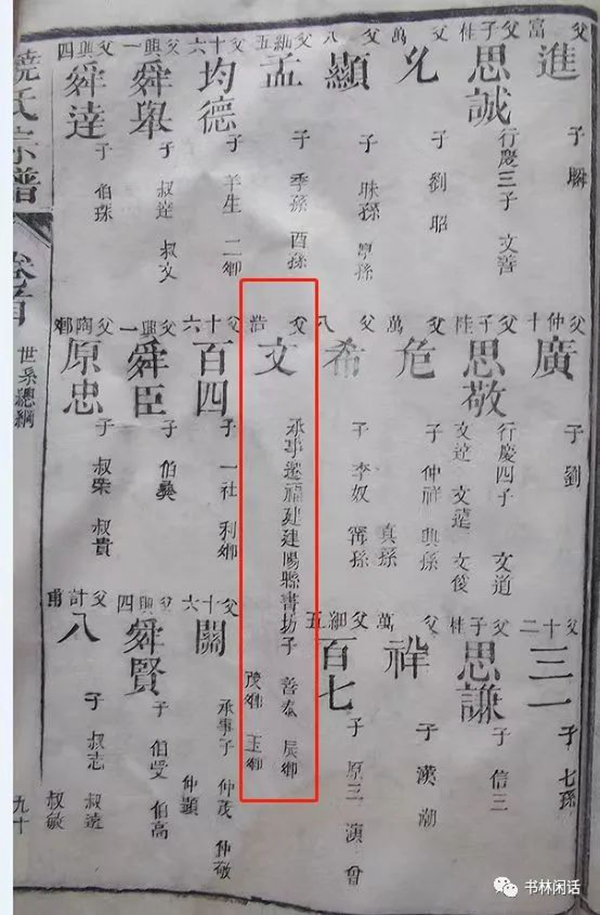 父富
進
子
父子桂
思誠
行慶三子 文善
父萬
兊
子 劉 昭
父八
顯
子 㽒孫 孳孫
父細五
孟
子 季孫 酉孫
父十六
均德
子 羊生 二鄉
父興一
舜舉
子 叔逹 叔文
父興四
舜逹
子 伯珠
父仲十
廣
子 劉
父子桂
思敬
行慶四子 文道
文逹 文蓮 文俊
父萬
危
子 仲祥 興孫
真孫
父八
希
子 李奴 寗孫
父浩
文
承事遷福建建陽縣書坊子 善泰 辰鄉
茂鄉 玉鄉
父十六
百四
子 一社 利鄉
父興一
舜臣
子 伯彜
父陶鄉
原忠
子 叔榮 叔貴
父十二
三一
子 七孫
父子桂
思謙
子 信三
父萬
祥
子 漢 潮
父細五
百七
子 原三 演 會
父十六
關
承事子 仲茂 仲敬
仲顯
父興四
舜賢
子 伯受 伯高
父計甫
八
子 叔志 叔逵
叔敏
饒氏宗譜
卷首
世系總綱
九十
书林闲话